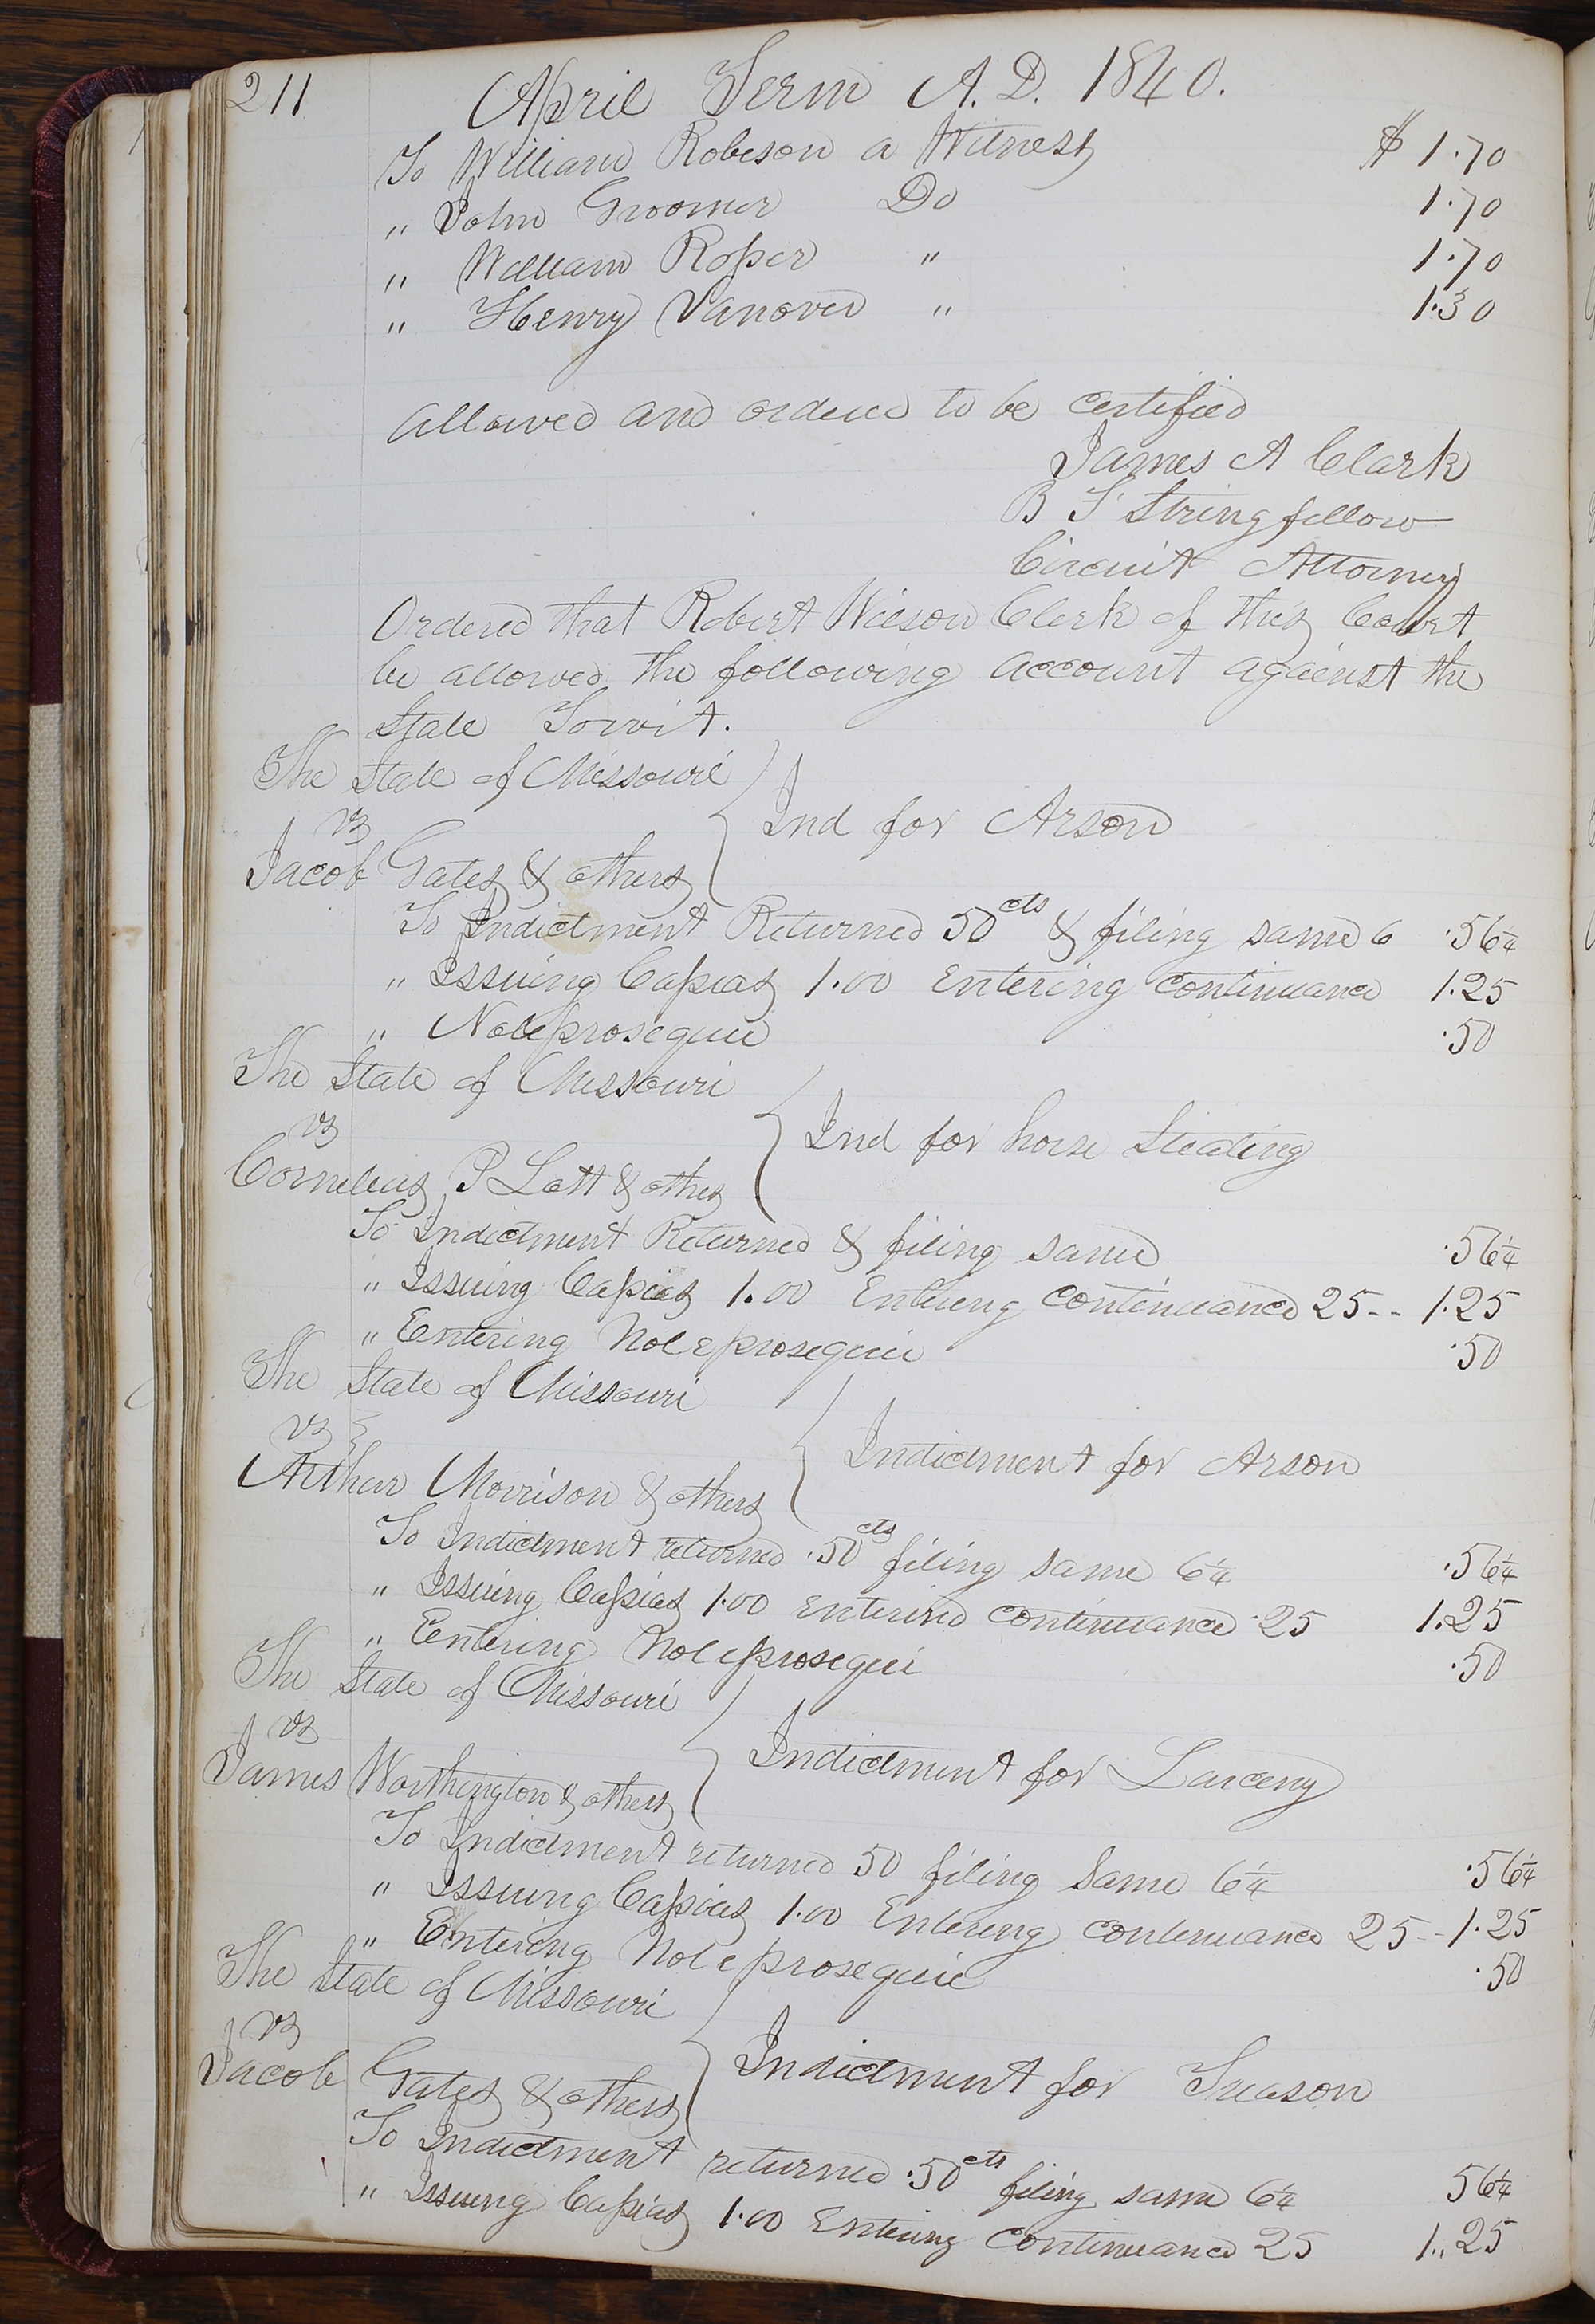 211 April Term A.D. 1840.
To William Robeson a Witness $ 1.70
" John Groomer Do 1.70
" William Roper " 1.70
" Henry Vanover " 1.30
allowed and ordered to be certified
James A Clark
B F Stringfellow
Circuit Attorney
Ordered that Robert Wilson Clerk of this Court
be allowed the following account against the
State Towit.
The State of Missouri
vs
Ind for Arson
Jacob Gates & others
To Indictment Returned 50cts & filing same 6 .56¼
" Issuing Capias 1.00 Entering continuance 1.25
" Noleprosequie .50
The State of Missouri
vs
Ind for horse Stealing
Cornelius P Lott & others
To Indictment Returned & filing same .56¼
" Issuing Capias 1.00 Entering continuance 25-- 1.25
" Entering Noleprosequie .50
The State of Missouri
vs
Indictment for Arson
Arthur Morrison & others
To Indictment returned .50cts filing same 6¼ .56¼
" Issuing Capias 1.00 entered continuance .25 1.25
" Entering Noleprosequi .50
The State of Missouri
vs
Indictment for Larceny
James Worthington & others
To Indictment returned 50 filing same 6¼ .56¼
" Issuing Capias 1.00 Entering continuance 25-- 1.25
" Entering Noleprosequie .50
The State of Missouri
vs
Indictment for Treason
Jacob Gates & others
To Indictment returned .50cts filing same 6¼ 56¼
" Issuing Capias 1.00 Entering continuance 25 1..25